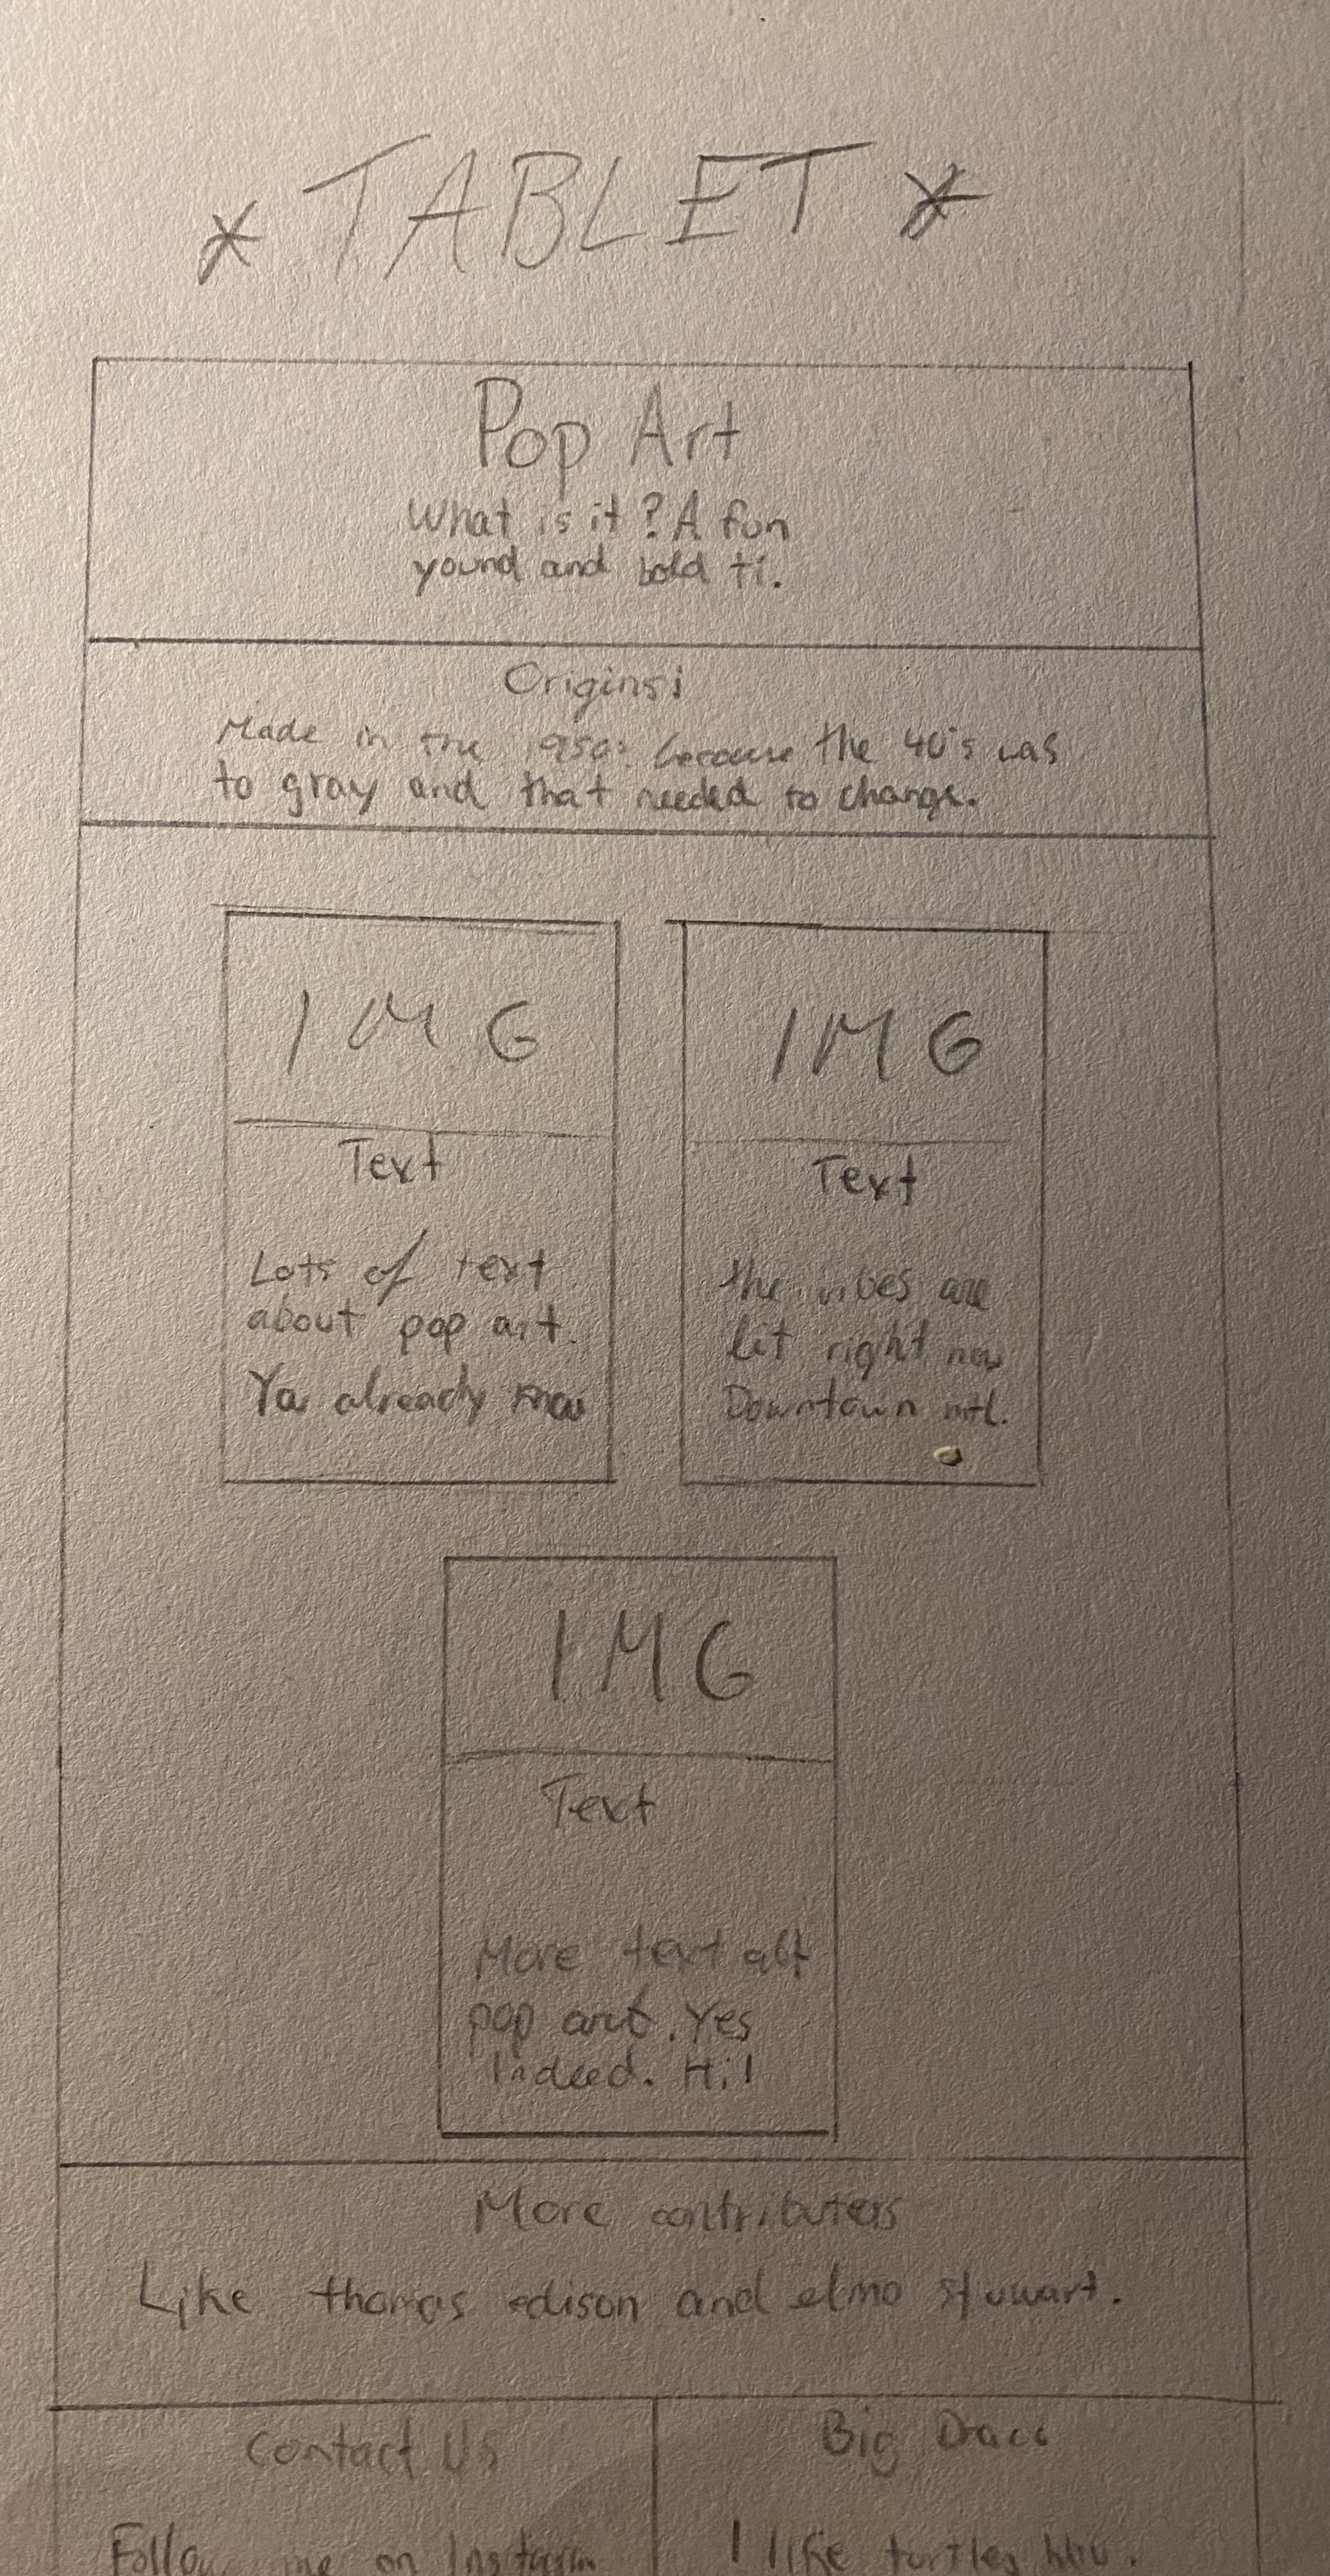 * TABLET *
Pop Art
What is it? A fun
yound and bold ti.
Origins:
Made in the 1950s because the 40's was
to gray and that needed to change.
IMG
Text
Lots of text
about pop art.
You already know
IMG
Text
the vibes are
lit right now
Downtown mtl.
IMG
Text
More text abt
pop art. Yes
Indeed. Hi!
More contributers
Like thomas edison and elmo stuwart.
Contact Us
Follow me on
Big
I like turtles